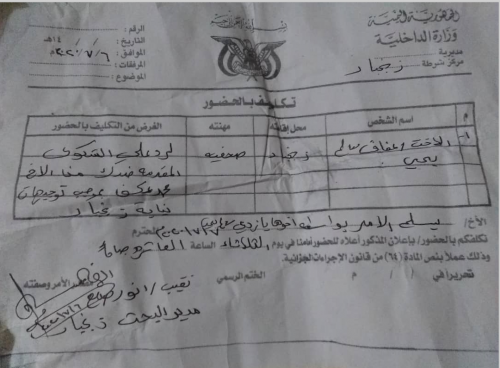 الجمهورية اليمنية
وزارة الداخلية
مديرية
مركز شرطة : زنجبار
الرقم :
التاريخ : / / ١٤هـ
الموافق : ٦ / ٧ / ٢٠٢٠م
المرفقات :
الموضوع :
تكليف بالحضور
م اسم الشخص محل إقامته مهنته الغرض من التكليف بالحضور
١- الأخت / عفاف سالم زنجبار صحفيه لرد على الشكوى
يحيى المقدمه ضدك من الأخ
بموجب توجيهات
نيابة زنجبار
الأخ/ يسلم الأمر بواسطة
تكلفكم بالحضور/ بإعلان المذكور أعلاه للحضور أمامنا في يوم الثلاثاء الساعة العاشره صباحاً
وذلك عملاً بنص المادة (٦٤) من قانون الإجراءات الجزائية.
تحريراً في / / م الختم الرسمي الأمر وصفته
نقيب / أنور صالح
مدير البحث زنجبار